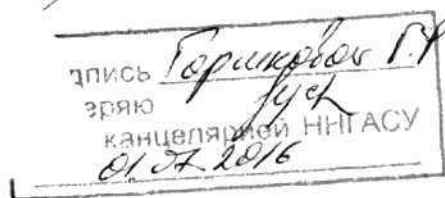 пись Горшковой Г.Р
еряю
канцелярией ННГАСУ
01.07.2016